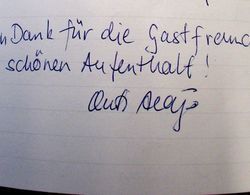 n Dank für die Gastfreund
schönen Aufenthalt!